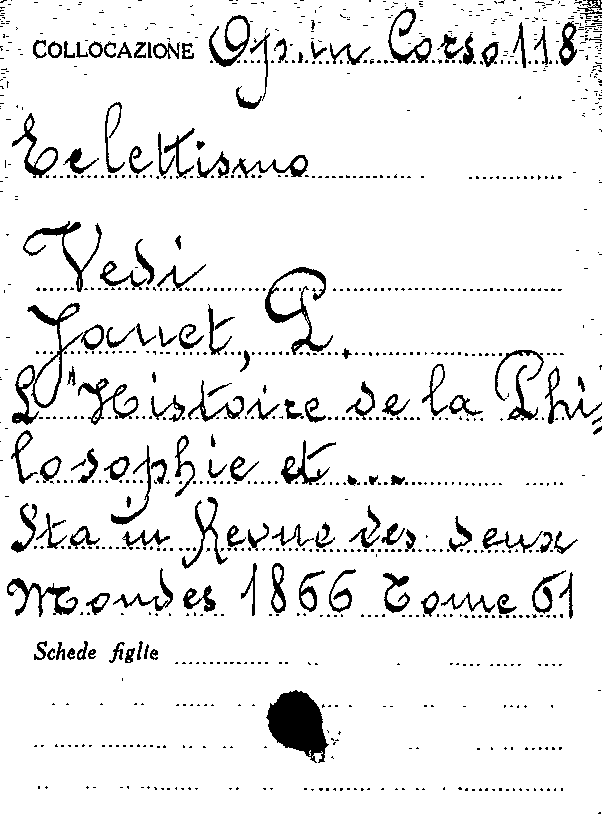 COLLOCAZIONE Op. in Corso 118
Eclettismo
Vedi
Janet, P.
L'Histoire de la Phi-
losophie et ...
Sta in Revue des deux
Mondes 1866 Tome 61
Schede figlie